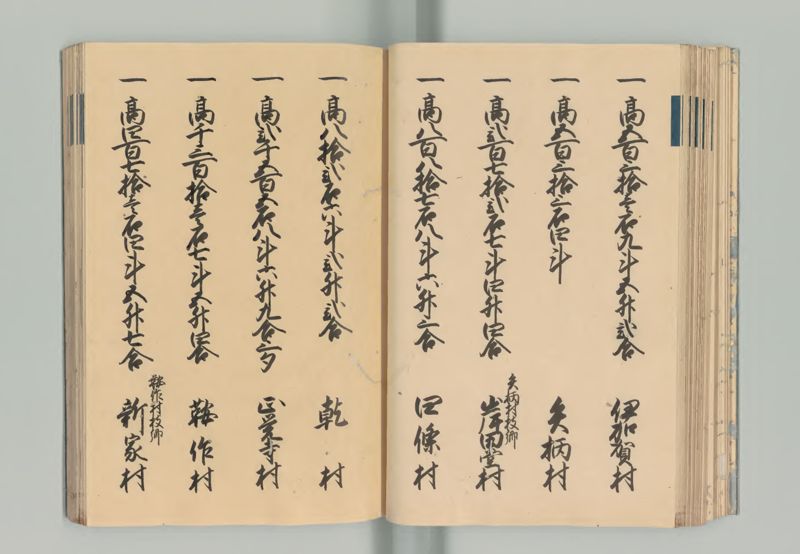 一 高五百三拾壱石九斗五升弐合 伊加賀村
一 高五百三拾三石四斗 矢柄村
一 高弐百七拾弐石七斗四升四合 矢柄村枝郷 岸田堂村
一 高八百八拾七石八斗六升三合 四條村
一 高八拾弐石六斗弐升弐合 乾村
一 高弐千五百五石八斗六升九合三夕 正覚寺村
一 高千三百拾壱石七斗五升四合 鞍作村
一 高四百七拾壱石四斗五升七合 鞍作村枝郷 新家村